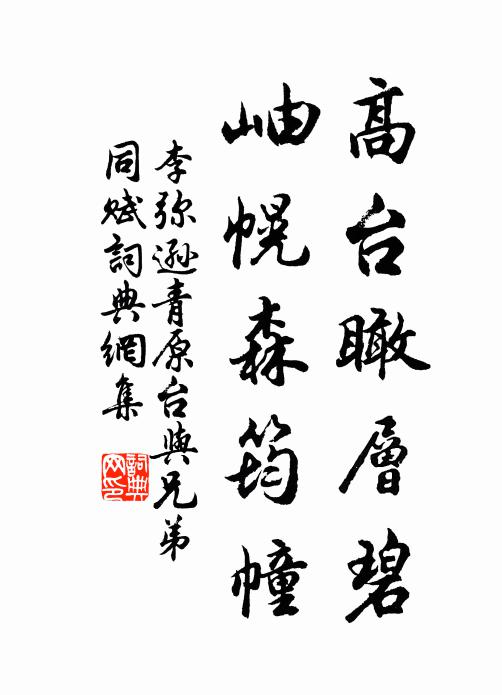 高台瞰層碧
岫幌森筠幢
李弥遜青原台與兄弟
同赋詞典網集
詞典网印